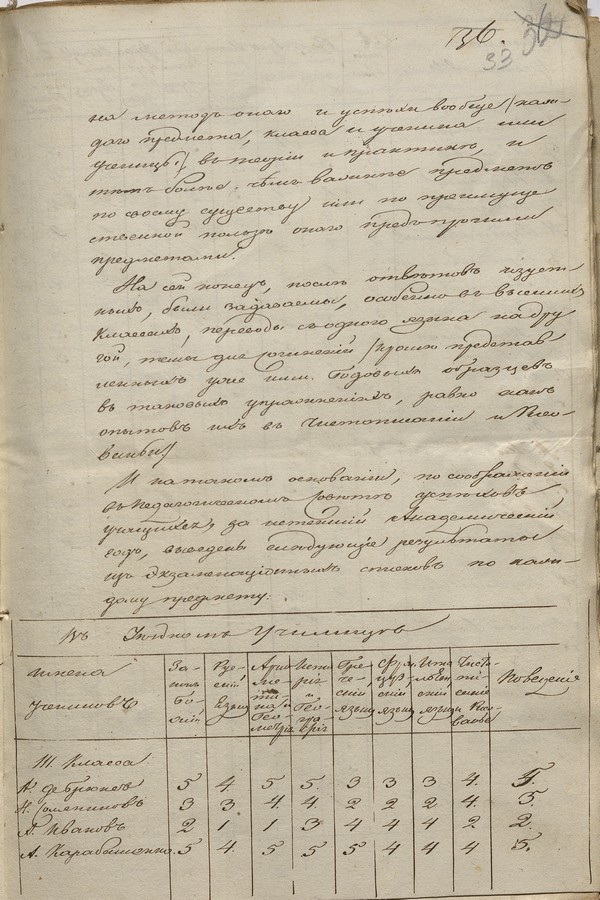 136.
33
на методъ онаго и успѣхи вообще (каж-
даго предмета, класса и ученика или
ученицы) въ теоріи и практикѣ, и
тѣмъ болѣе, чѣмъ важнѣе предметъ
по своему существу или по преимуще
ственной пользѣ онаго предъ прочими
предметами.
На сей конецъ, послѣ отвѣтовъ изуст-
ныхъ, были задаваемы, особенно въ высшихъ
Классахъ, переводы съ одного языка на дру
гой, темы для сочиненій (кромѣ представ
ленныхъ уже ими Годовыхъ образцевъ
въ таковыхъ упражненіяхъ, равно какъ
опытовъ ихъ въ Чистописаніи и Рисо-
ваніи)
И на такомъ основаніи, по соображеніи
въ Педагогическомъ Совѣтѣ успѣховъ
учащихся, за истекшій Академическій
годъ, выведены слѣдующіе результаты
изъ Экзаменаціонныхъ списковъ по каж-
дому предмету:
Въ Уѣздномъ Училищѣ
Имена Учениковъ
Законъ Божій
Рускій Языкъ
Ариѳметика и Геометрія
Исторія и Географія
Греческій языкъ
Французскій языкъ
Итальянскій языкъ
Чистописаніе
Поведеніе
III. Класса
5 4. 5 5. 3 3 3 4. 5.
3 3. 4 4. 2 2 2 4. 5.
А. Ивановъ 2 1 1 3 4 4 4 2 2.
А. Карабашенко. 5 4. 5 5 5 4 4 4 5.